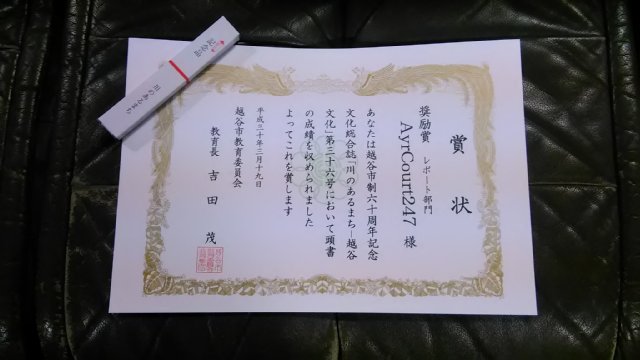 賞状
奨励賞 レポート部門
AyrCourt247 様
あなたは越谷市制六十周年記念
文化総合誌「川のあるまち―越谷
文化」第三十六号において頭書
の成績を収められました
よってこれを賞します
平成三十年三月十九日
越谷市教育委員会
教育長 吉田 茂
記念品
川のあるまち